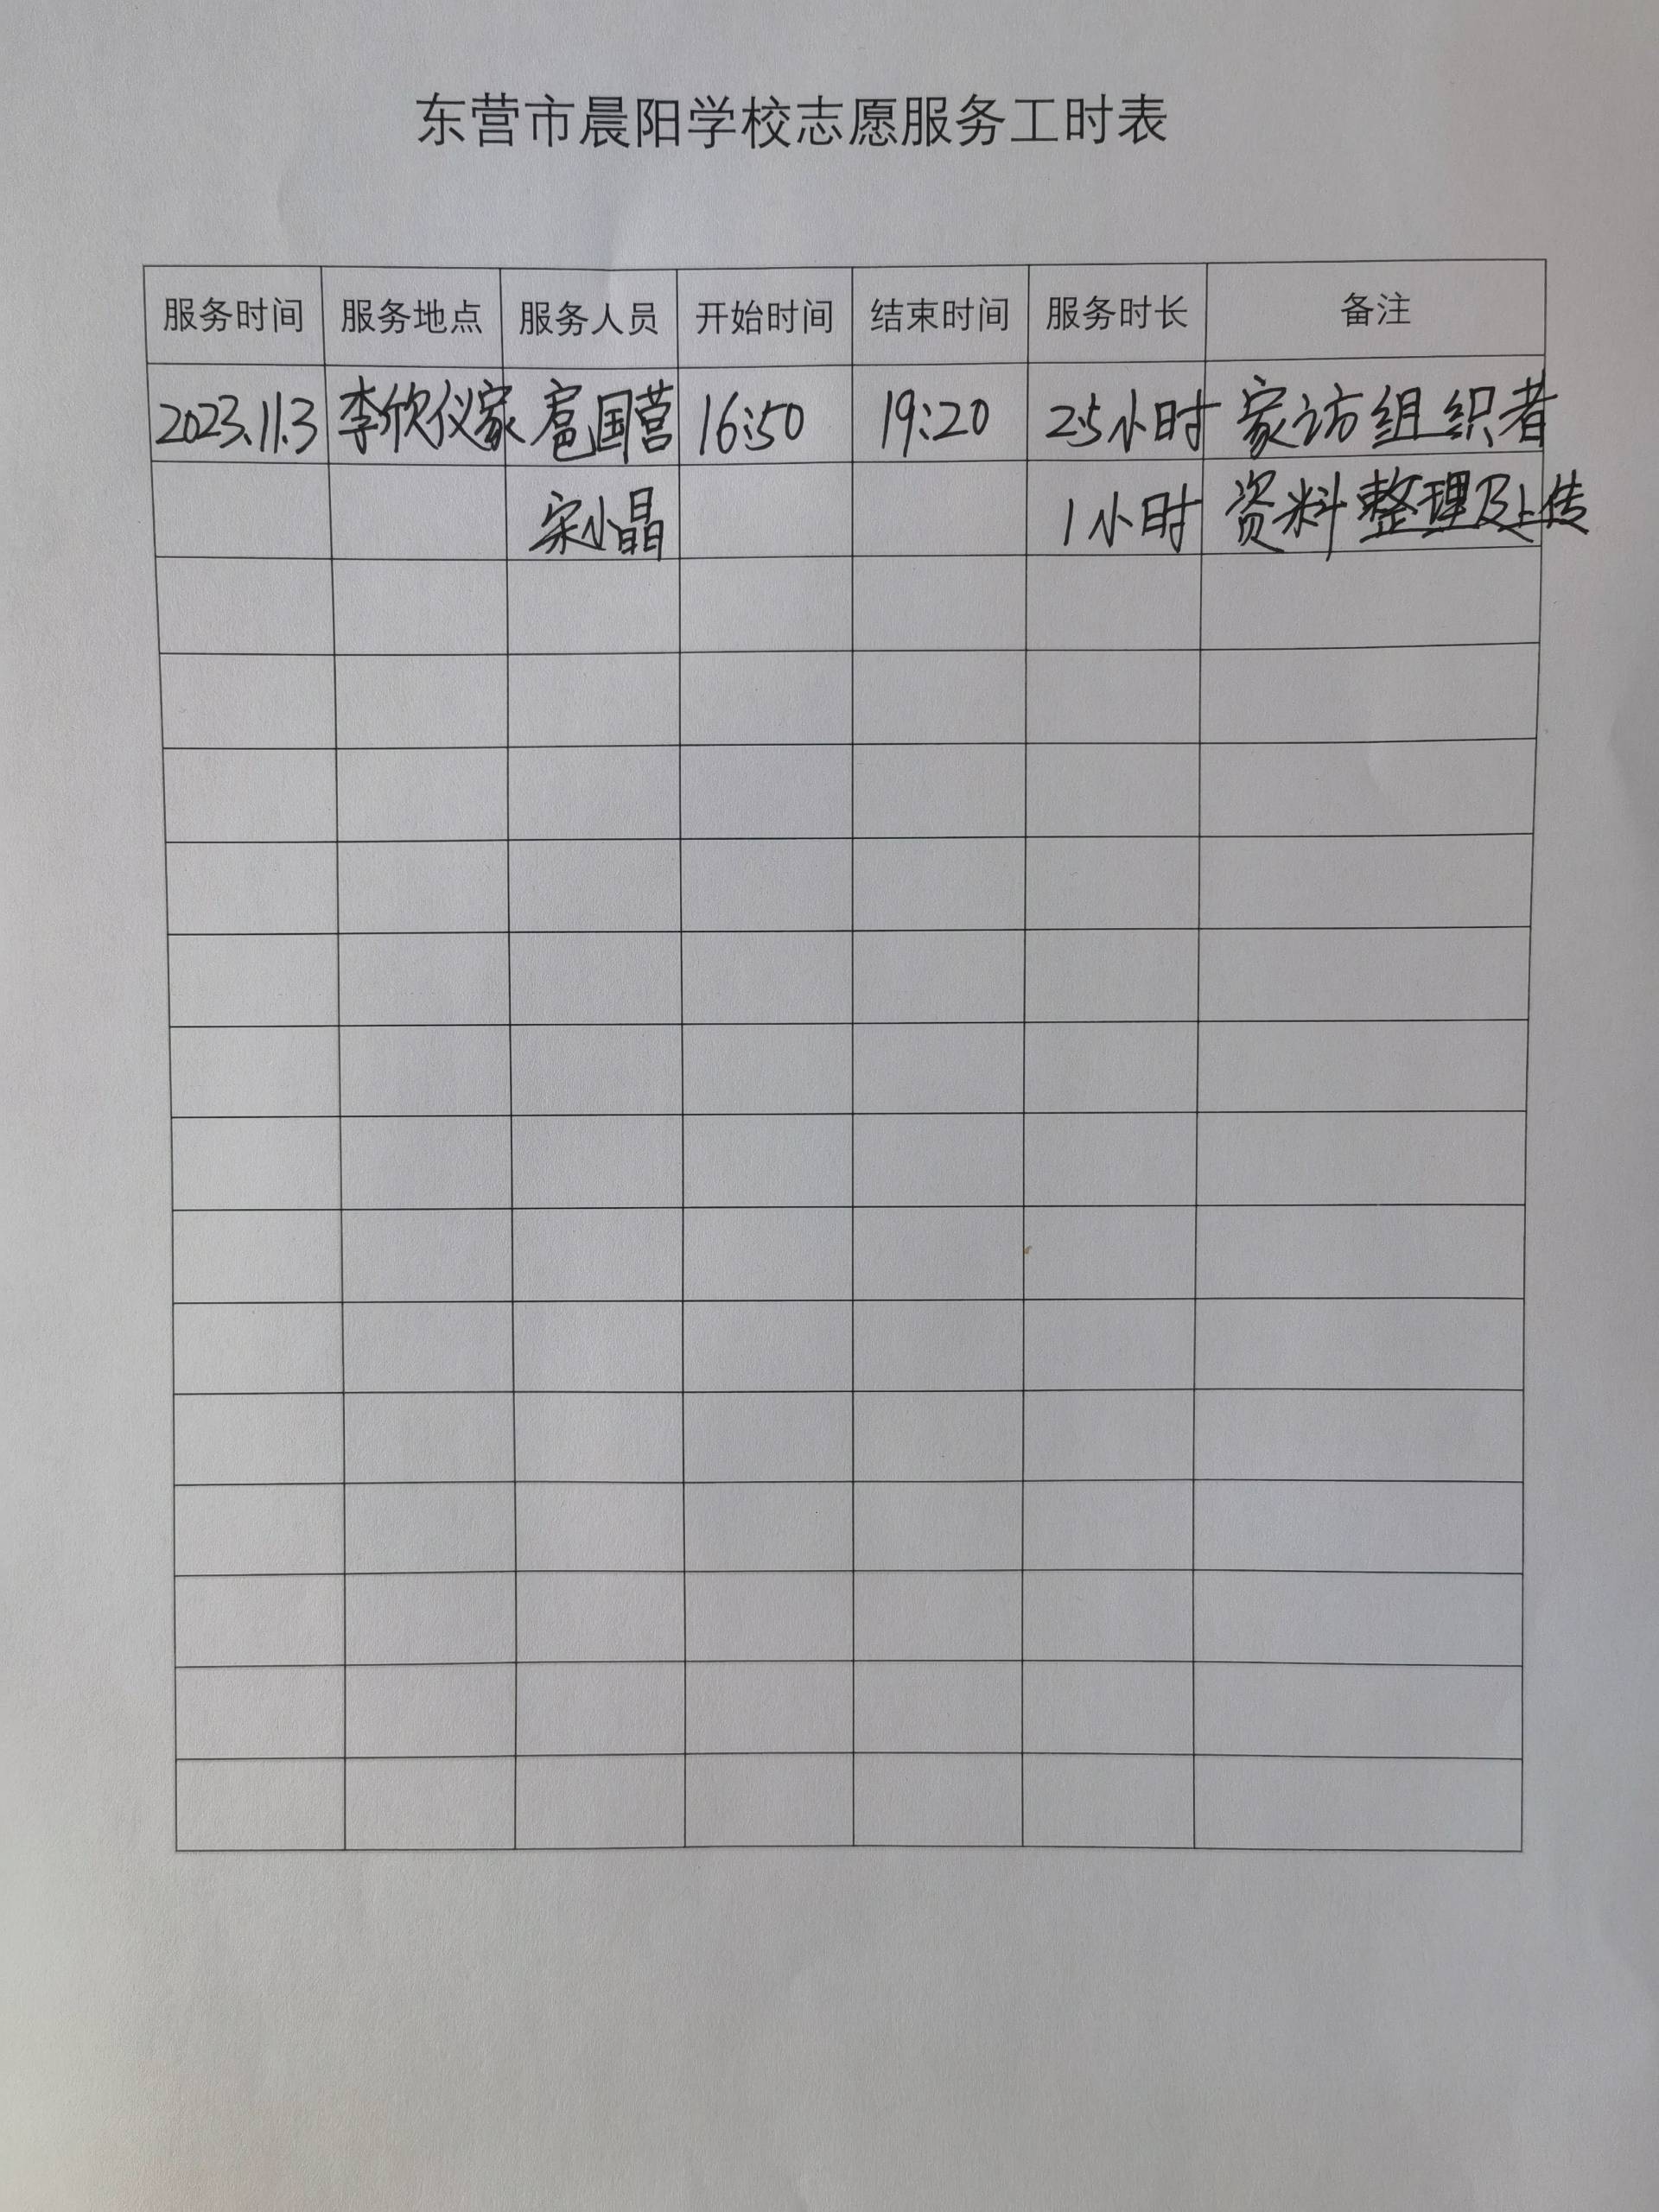 东营市晨阳学校志愿服务工时表
服务时间 服务地点 服务人员 开始时间 结束时间 服务时长 备注
2023.11.3 李欣仪家 扈国营 16:50 19:20 2.5小时 家访组织者
宋小晶 1小时 资料整理及上传